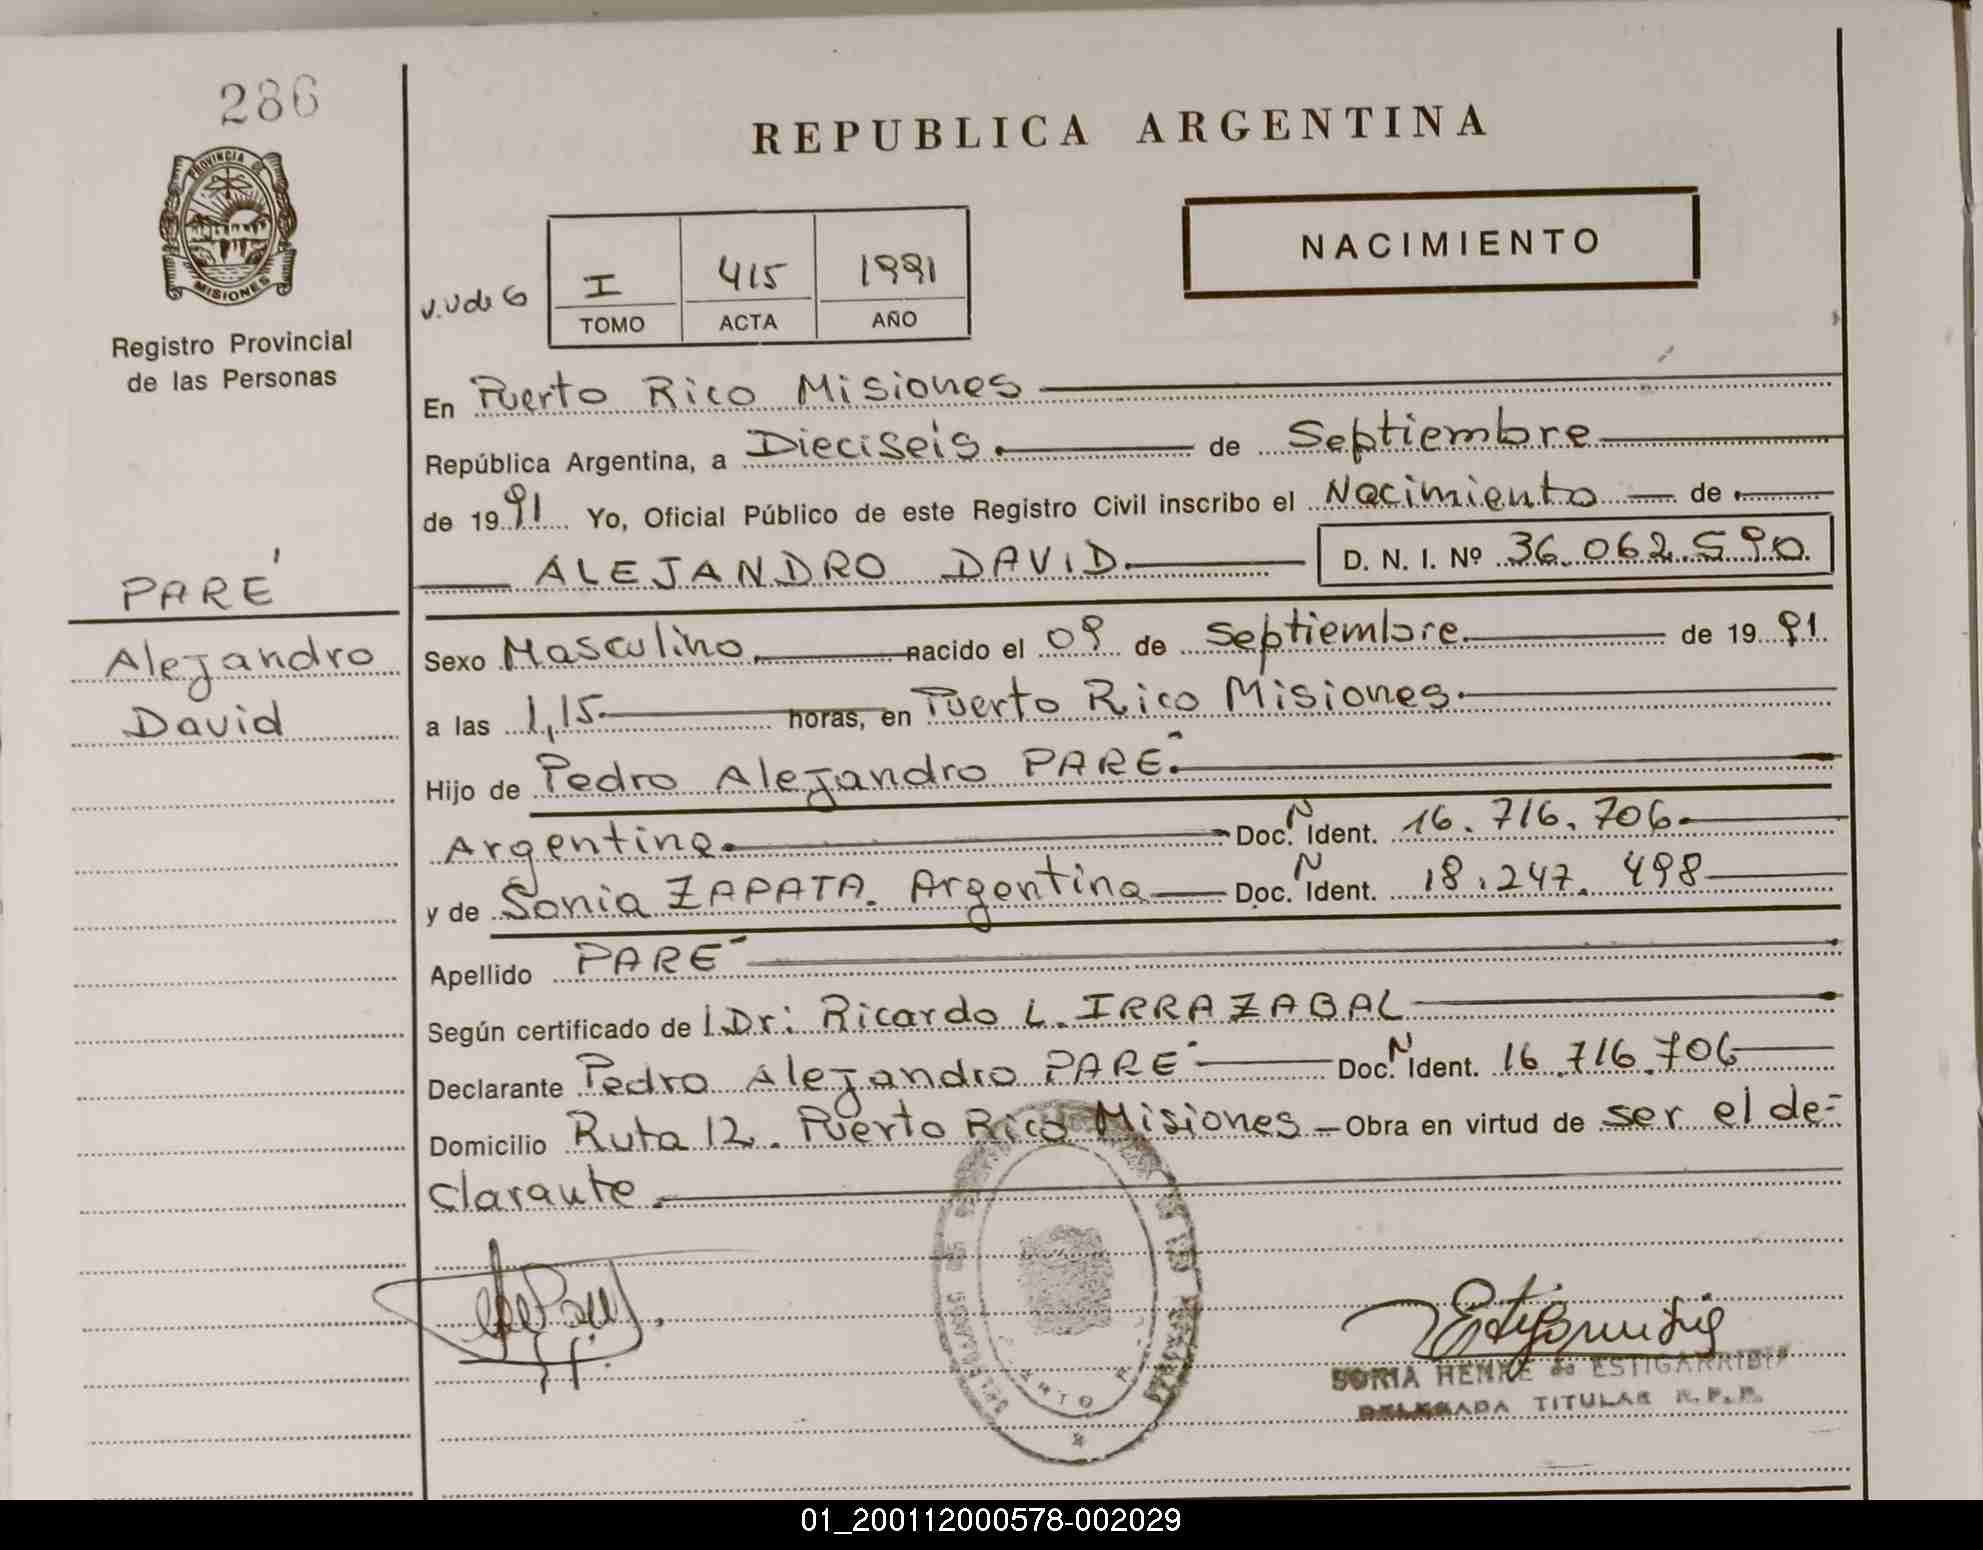 286
REPUBLICA ARGENTINA
PROVINCIA DE
MISIONES
Registro Provincial
de las Personas
I 415 1991
TOMO ACTA AÑO
NACIMIENTO
En Puerto Rico Misiones
República Argentina, a Dieciseis. de Septiembre
de 1991 Yo, Oficial Público de este Registro Civil inscribo el Nacimiento de
ALEJANDRO DAVID. D. N. I. Nº 36.062.590
PARÉ
Alejandro
David
Sexo Masculino. nacido el 09 de Septiembre de 1991.
a las 1,15 horas, en Puerto Rico Misiones.
Hijo de Pedro Alejandro PARÉ.
Argentina. Doc. N Ident. 16.716.706.
y de Sonia ZAPATA. Argentina Doc. N Ident. 18.247.498
Apellido PARÉ
Según certificado de Dr: Ricardo L. IRRAZABAL
Declarante Pedro Alejandro PARÉ Doc. N Ident. 16.716.706
Domicilio Ruta 12. Puerto Rico Misiones Obra en virtud de ser el de-
clarante.
HENKE de ESTIGARRIBIA
DELEGADA TITULAR R.P.P.
01_200112000578-002029